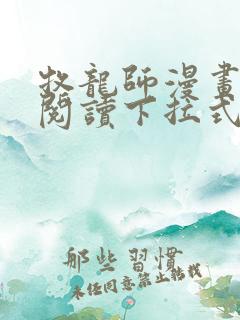 牧龍師漫畫
閱讀下拉式
那些習慣
未經同意禁止轉載